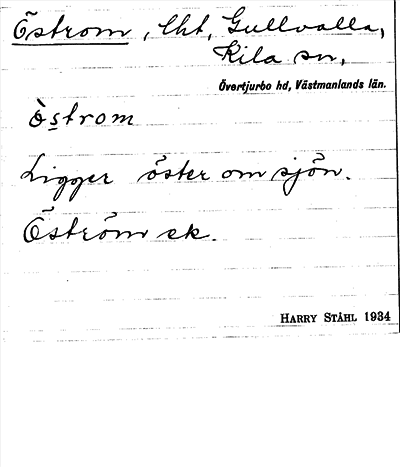 Östrom, lht, Gullvalla,
Kila sn,
Övertjurbo hd, Västmanlands län.
ò̱strom
Ligger öster om sjön.
Öström ek.
HARRY STÅHL 1934